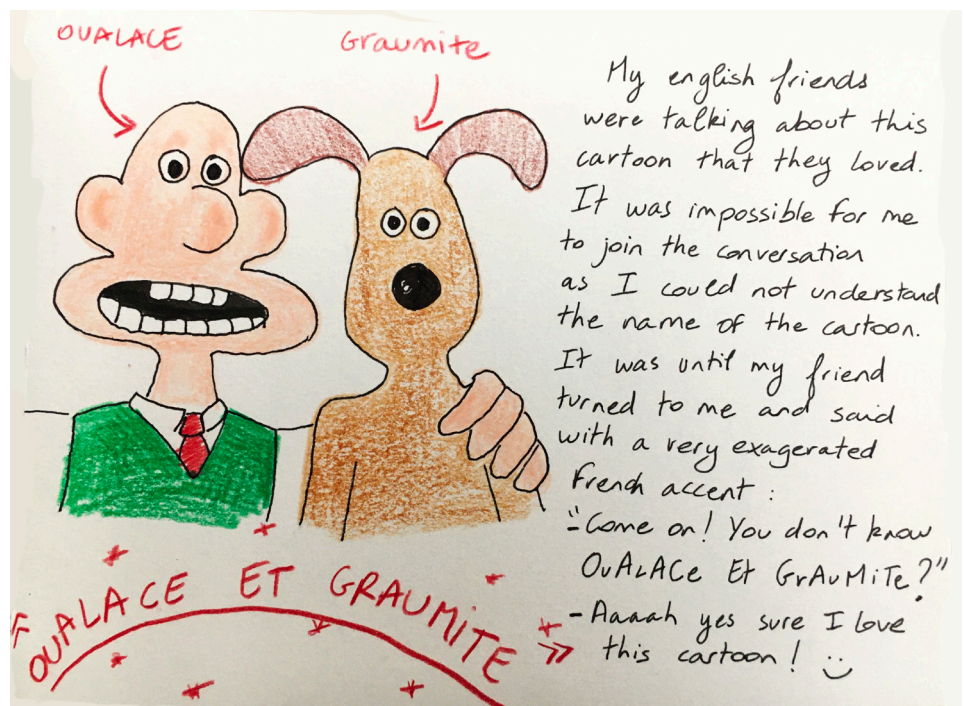 OUALACE
Graumite
My english friends
were talking about this
cartoon that they loved.
It was impossible for me
to join the conversation
as I could not understand
the name of the cartoon.
It was until my friend
turned to me and said
with a very exagerated
French accent :
"Come on! You don't know
OUALACE Et GrAuMiTe?"
- Aaaah yes sure I love
this cartoon! :)
« OUALACE ET GRAUMiTE »